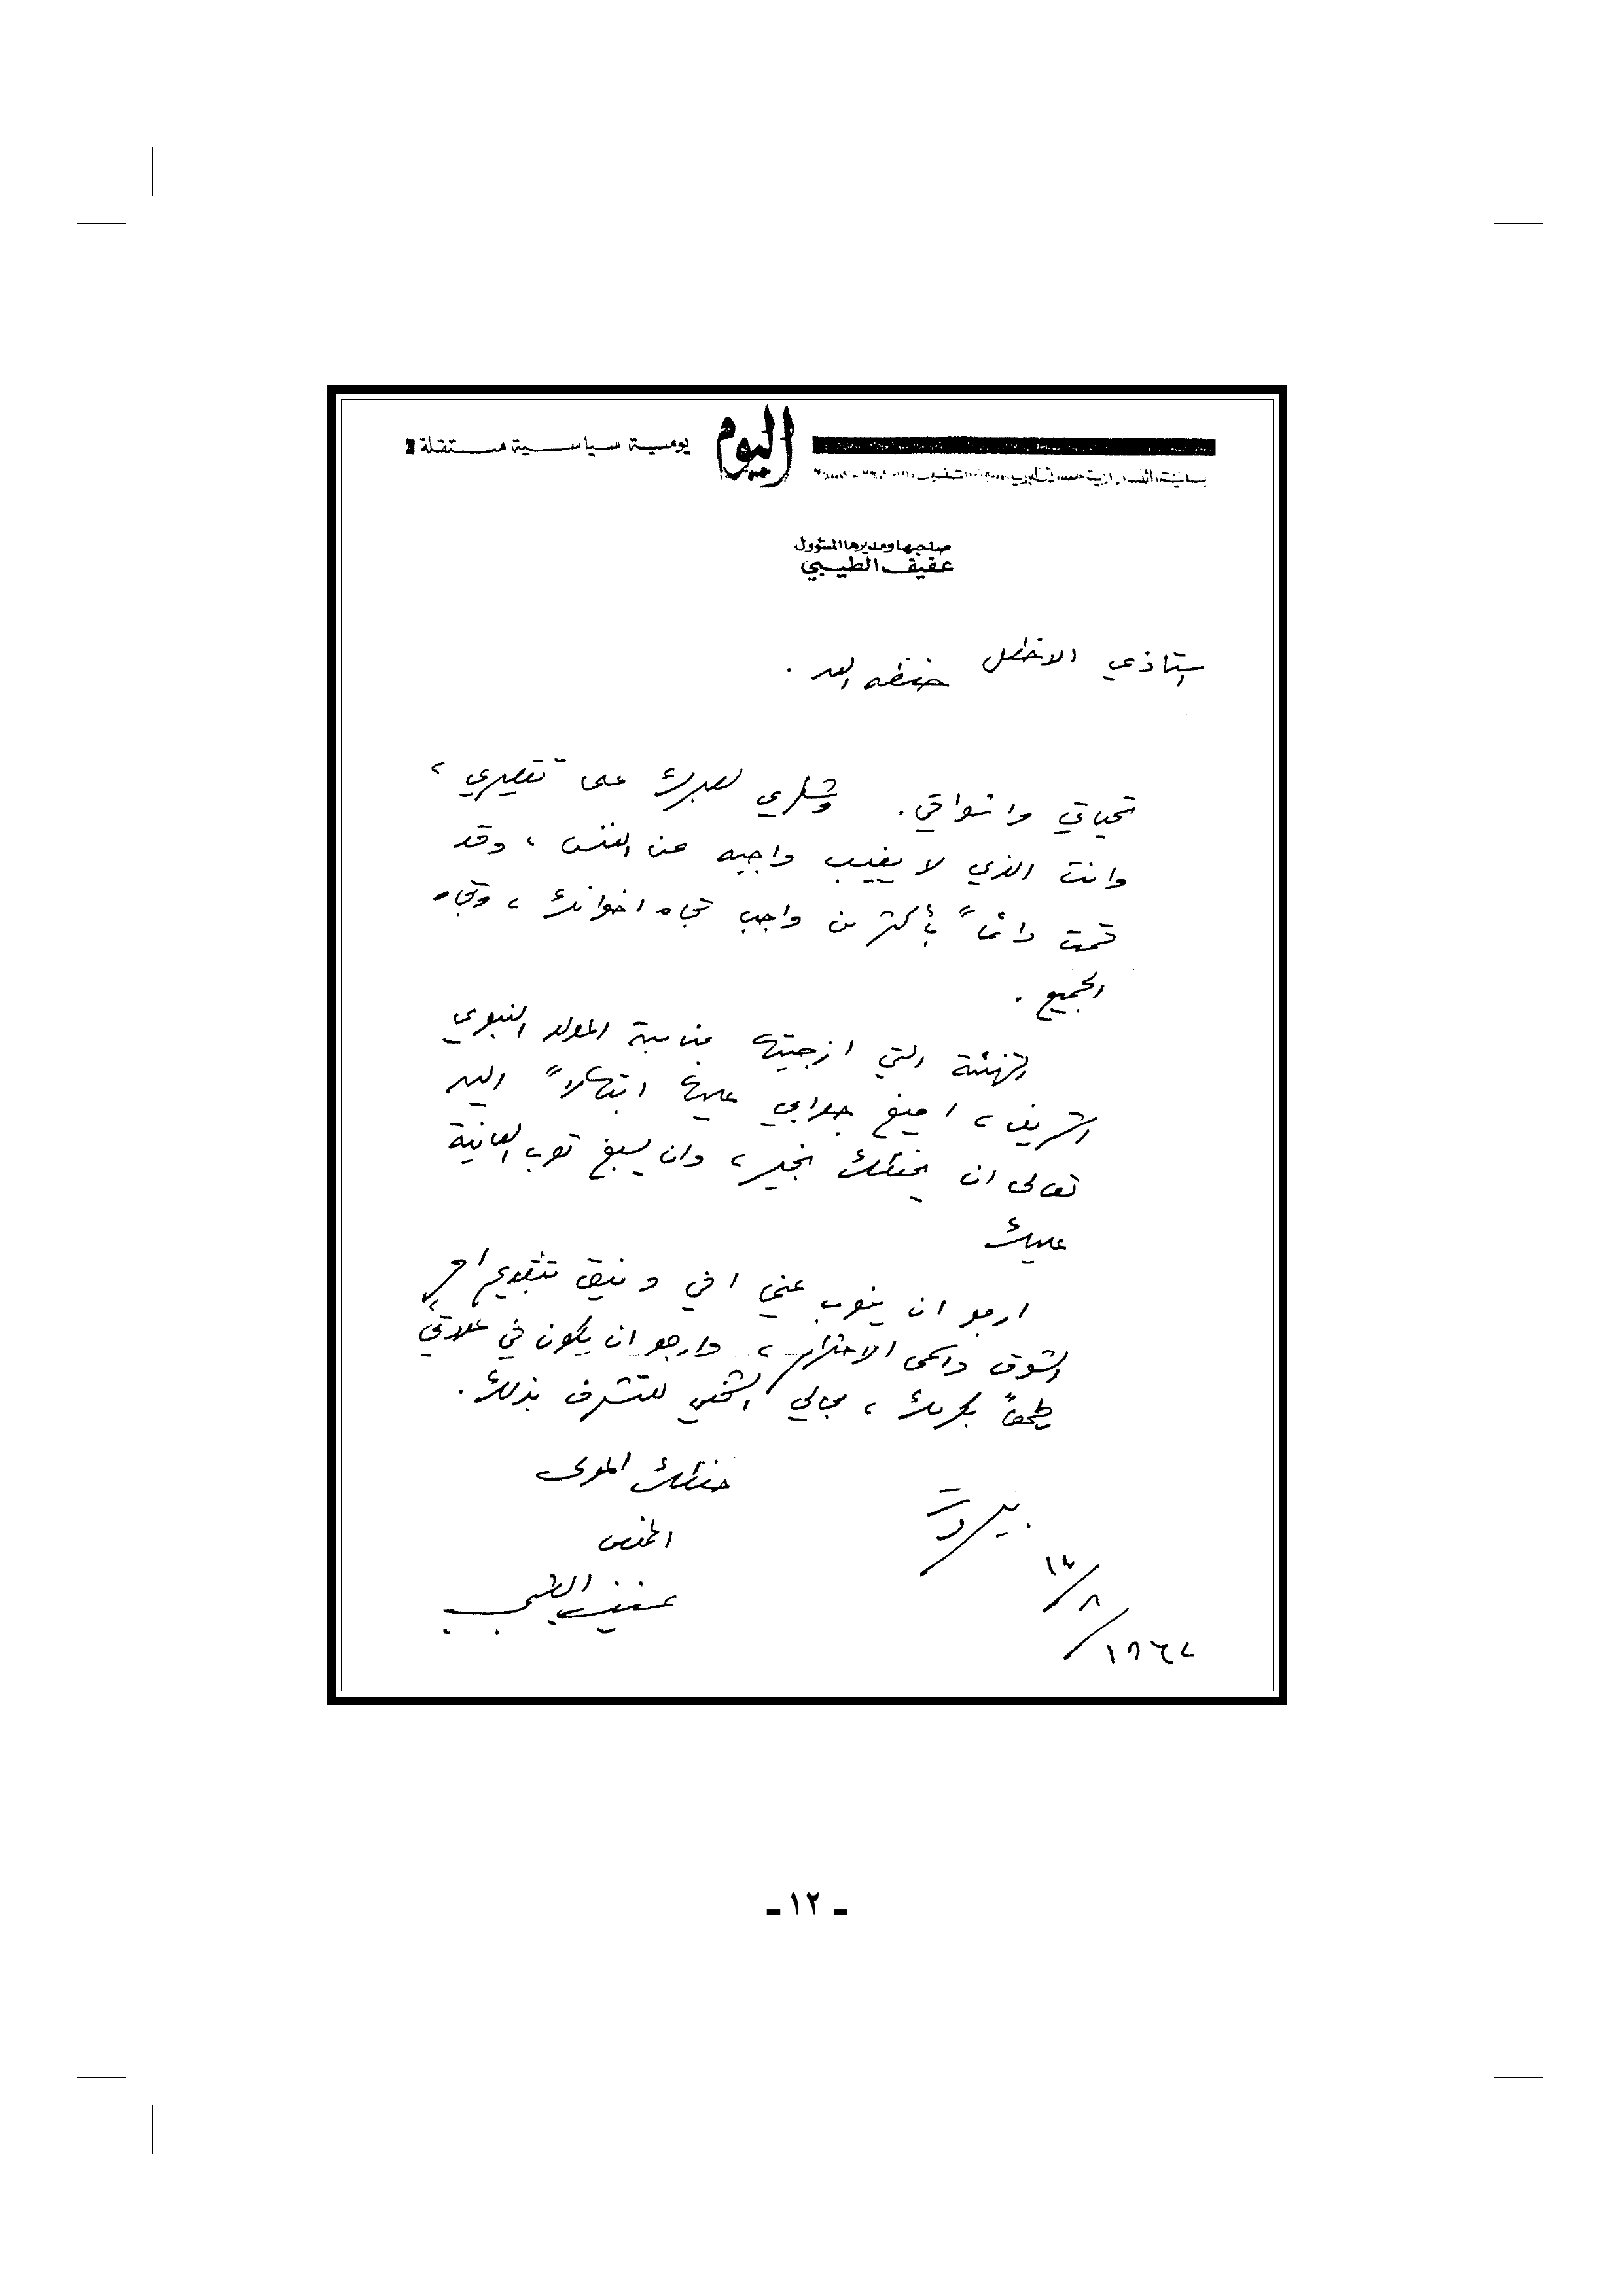 اليوم
يومية سياسية مستقلة
صاحبها ومديرها المسؤول
عفيف الطيبي
استاذي الاخطل حفظه الله .
تحياتي واشواقي . وشكري لصبرك على تقصيري ،
وانت الذي لا يغيب واجبه عن النفس ، وقد
قمت دائماً بأكثر من واجب تجاه اخوانك ، وتجاه
الجميع .
التهنئة التي ازجيتها بمناسبة المولد النبوي
الشريف ، اصيغ جوابي عليها ابتهالاً اليه
تعالى ان يحفظك بخير ، وان يسبغ ثوب العافية
عليك
ارجو ان ينوب عني اخي وفيق بتقديم احر
الشوق واسمى الاحترام ، وارجو ان يكون في علاقتي
بكرمك ، مجالي الشخصي للتشرف بذلك .
حفظك المولى
المخلص
عفيف الطيبي
بيروت
١٩٦٢
ـ ١٢ ـ